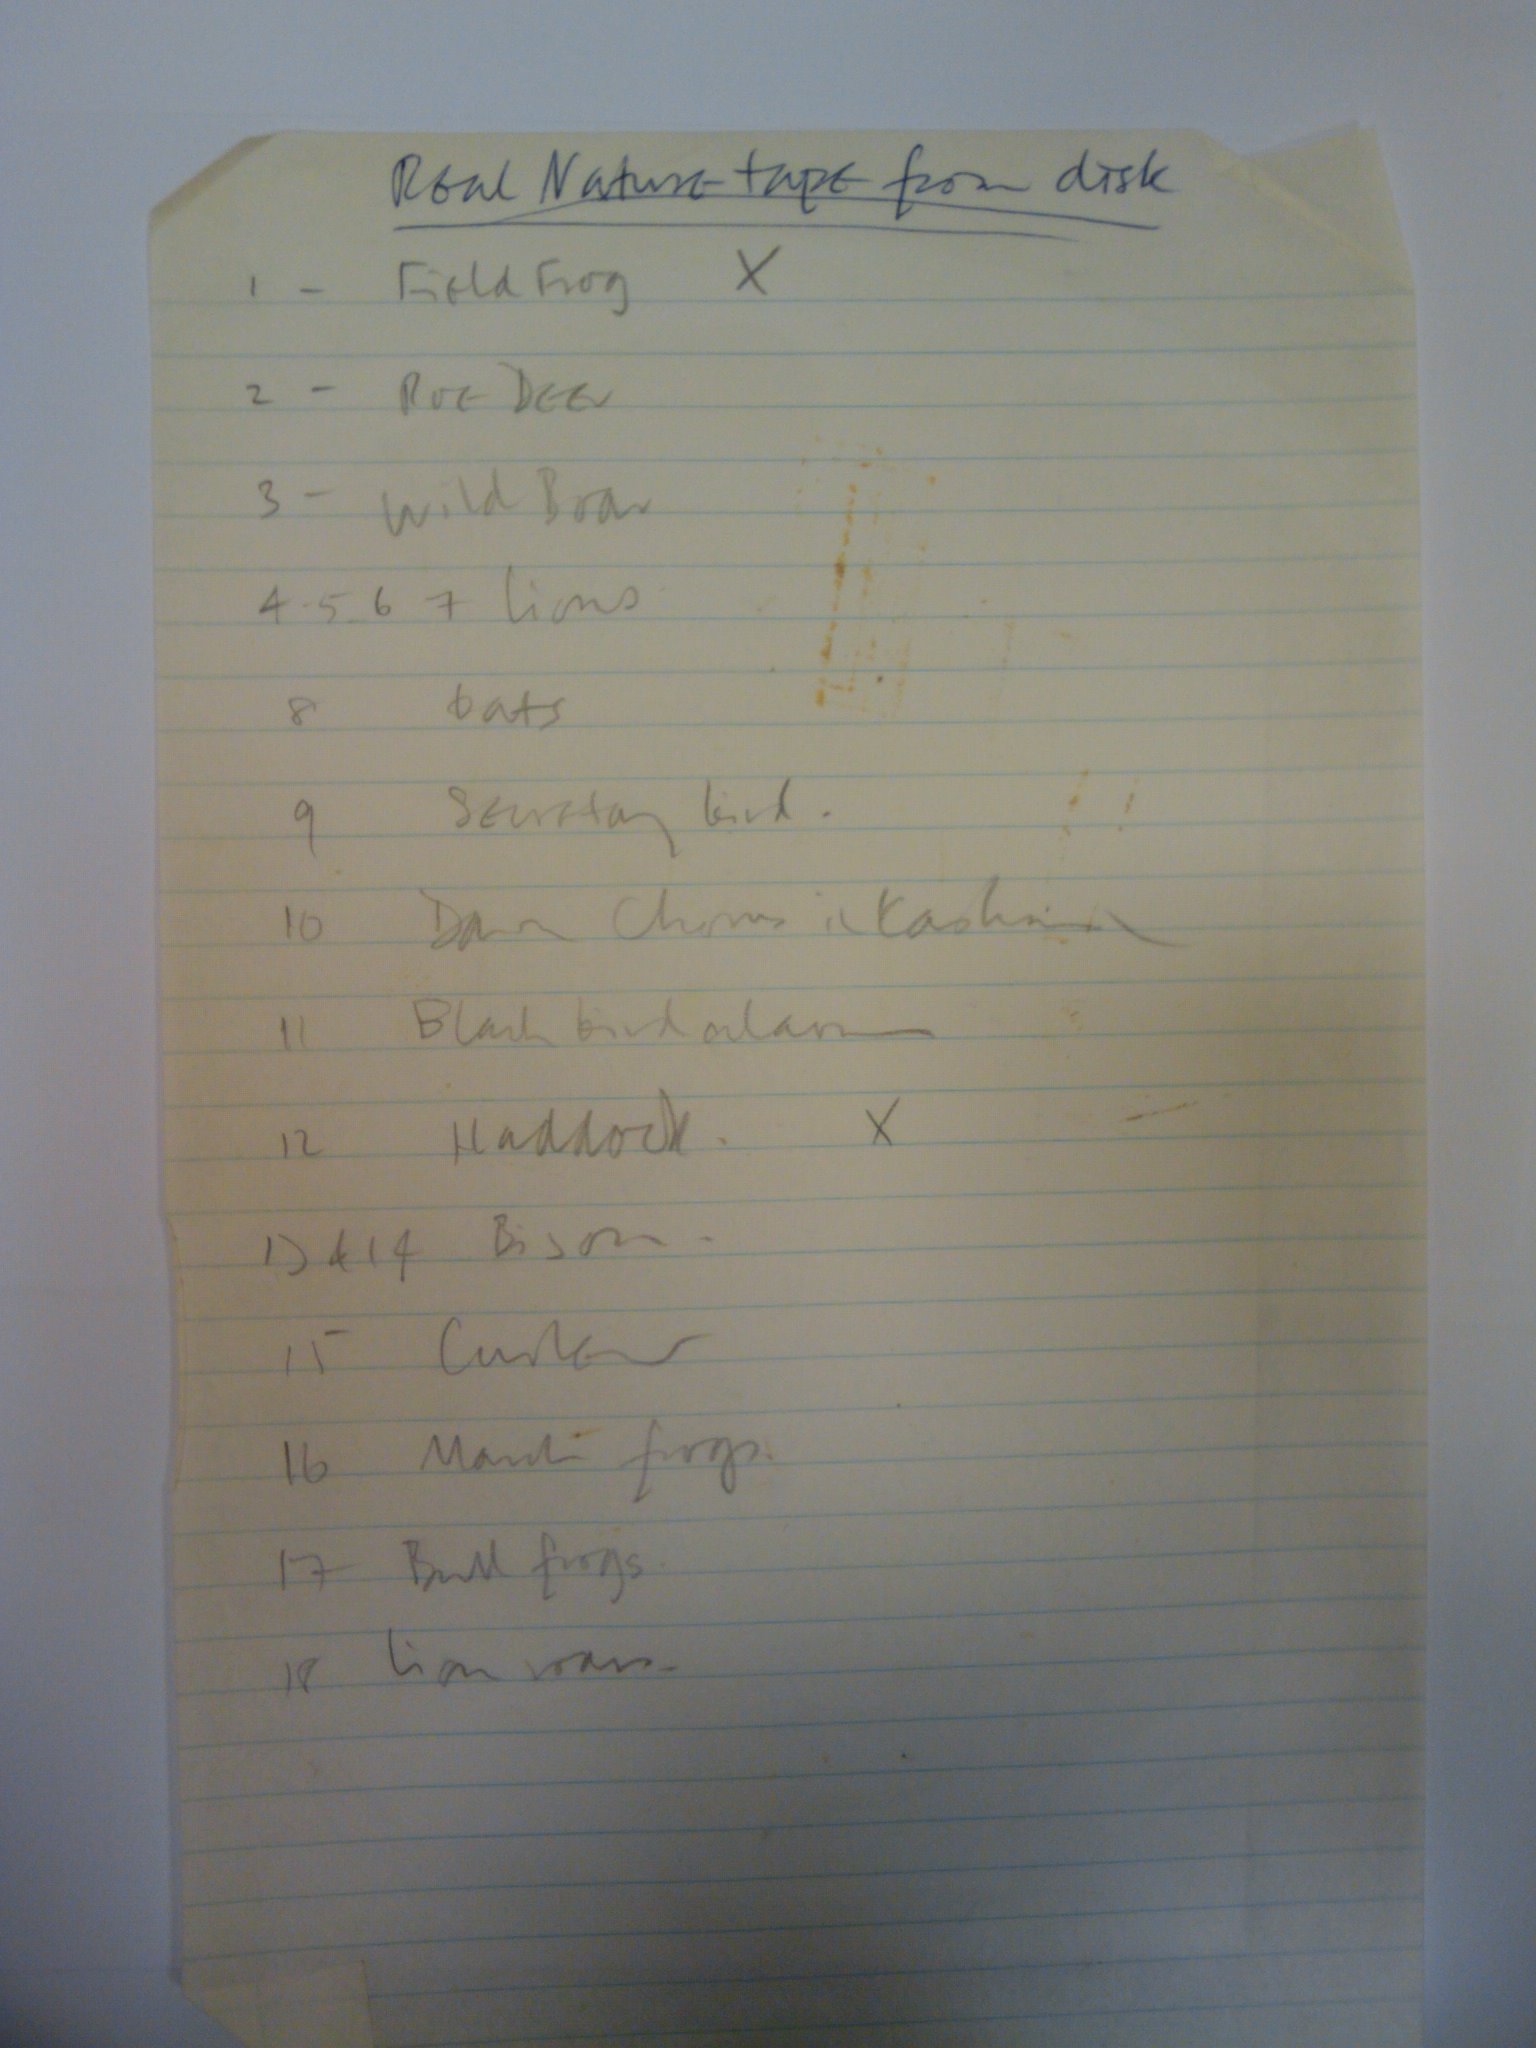 Real Nature tape from disk
1 - Field Frog X
2 - Roe Deer
3 - Wild Boar
4.5.6 7 lions
8 bats
9 Secretary bird.
10 Dawn Chorus in Kashmir
11 Blackbird alarm
12 Haddock. X
13 & 14 Bison.
15 Curlew
16 Marsh frogs.
17 Bull frogs.
18 lion roars.